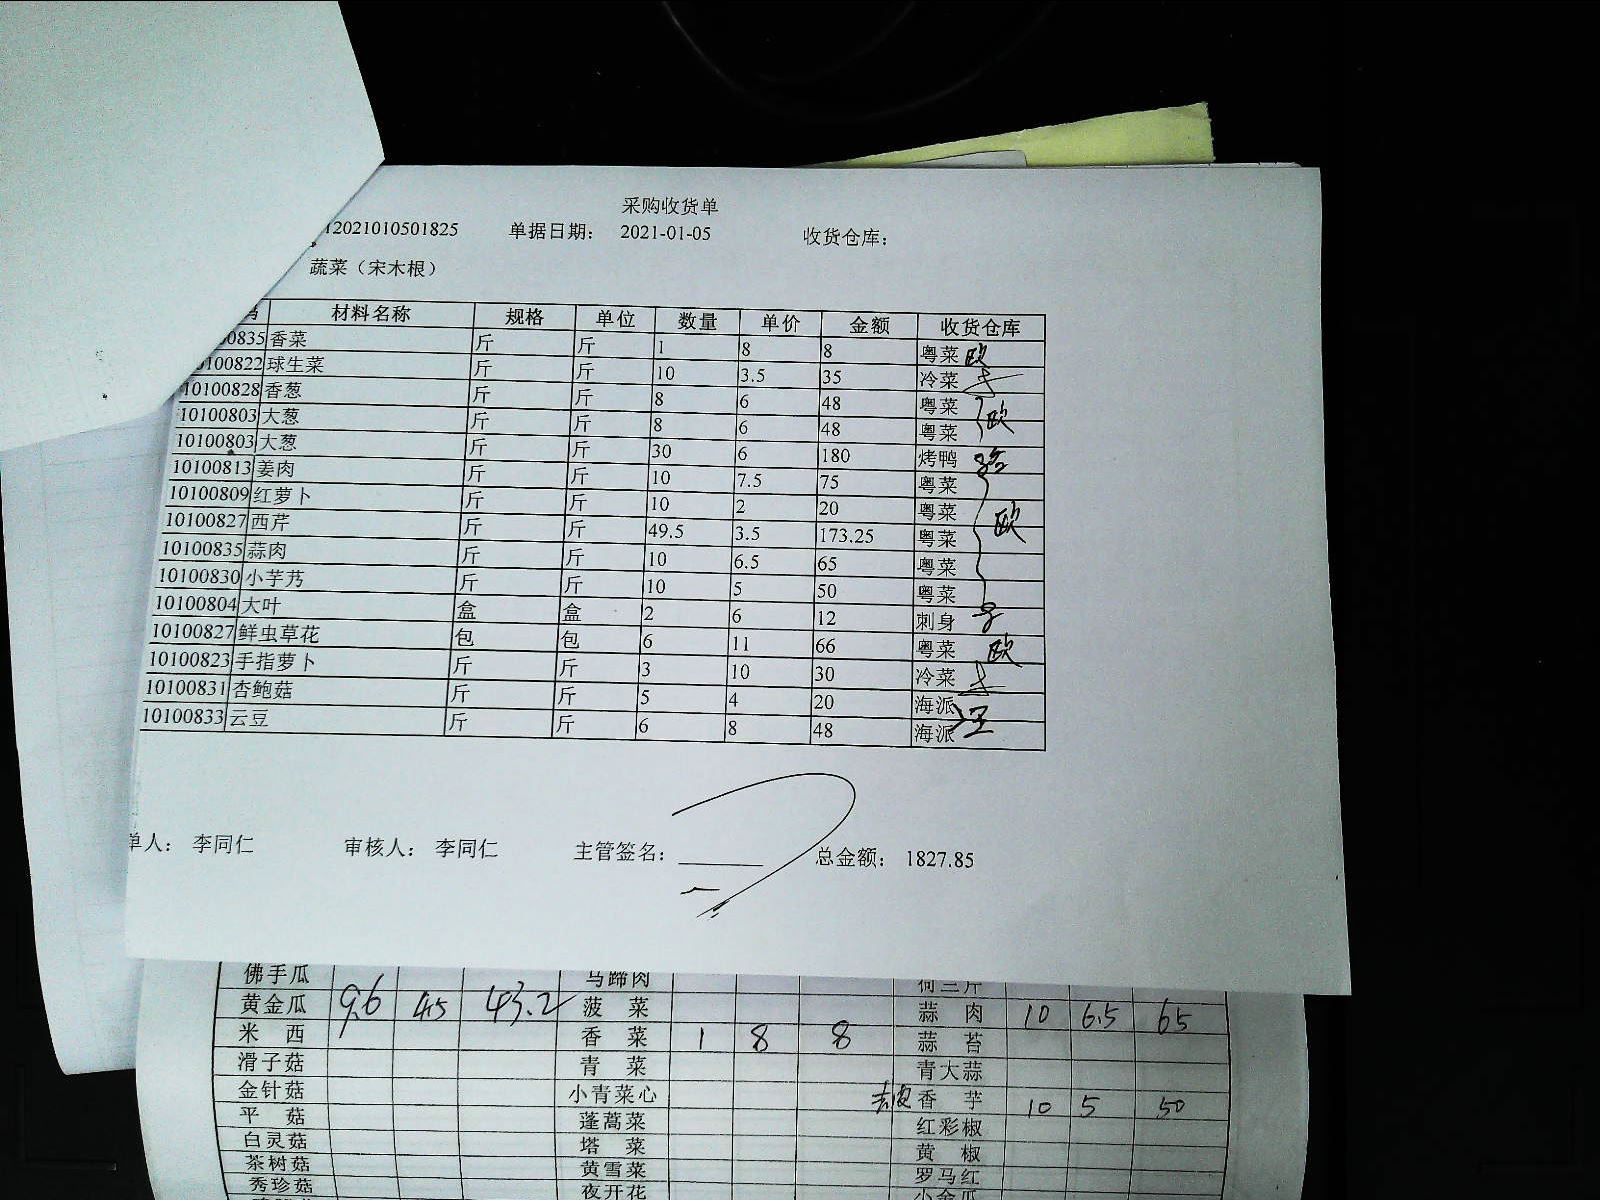 采购收货单
12021010501825 单据日期： 2021-01-05 收货仓库：
蔬菜（宋木根）
材料名称 规格 单位 数量 单价 金额 收货仓库
0835 香菜 斤 斤 1 8 8 粤菜 欧
100822 球生菜 斤 斤 10 3.5 35 冷菜
10100828 香葱 斤 斤 8 6 48 粤菜
10100803 大葱 斤 斤 8 6 48 粤菜 欧
10100803 大葱 斤 斤 30 6 180 烤鸭
10100813 姜肉 斤 斤 10 7.5 75 粤菜
10100809 红萝卜 斤 斤 10 2 20 粤菜
10100827 西芹 斤 斤 49.5 3.5 173.25 粤菜 欧
10100835 蒜肉 斤 斤 10 6.5 65 粤菜
10100830 小芋艿 斤 斤 10 5 50 粤菜
10100804 大叶 盒 盒 2 6 12 刺身
10100827 鲜虫草花 包 包 6 11 66 粤菜 欧
10100823 手指萝卜 斤 斤 3 10 30 冷菜
10100831 杏鲍菇 斤 斤 5 4 20 海派
10100833 云豆 斤 斤 6 8 48 海派 王
单人： 李同仁 审核人： 李同仁 主管签名： 总金额： 1827.85
佛手瓜 马蹄肉 荷兰芹
黄金瓜 9.6 4.5 43.2 菠菜 蒜肉 10 6.5 65
米西 香菜 1 8 8 蒜苔
滑子菇 青菜 青大蒜
金针菇 小青菜心 去皮 香芋 10 5 50
平菇 蓬蒿菜 红彩椒
白灵菇 塔菜 黄椒
茶树菇 黄雪菜 罗马红
秀珍菇 夜开花 小金瓜